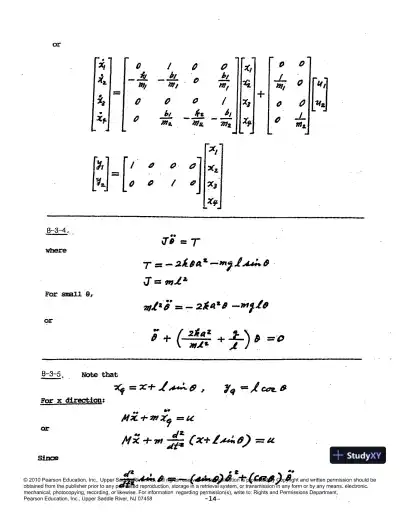 or
ẋ₁ 0 1 0 0 x₁ 0 0
ẋ₂ = -k₁/m₁ -b₁/m₁ 0 b₁/m₁ x₂ + 1/m₁ 0 u₁
ẋ₃ 0 0 0 1 x₃ 0 0 u₂
ẋ₄ 0 b₁/m₂ -k₂/m₂ -b₁/m₂ x₄ 0 1/m₂
y₁ = 1 0 0 0 x₁
y₂ 0 0 1 0 x₂
x₃
x₄
B-3-4.
Jθ̈ = T
where
T = -2kθa² - mgl sin θ
J = ml²
For small θ,
ml²θ̈ = -2ka²θ - mglθ
or
θ̈ + (2ka²/ml² + g/l) θ = 0
B-3-5. Note that
x_g = x + l sin θ, y_g = l cos θ
For x direction:
Mẍ + mẍ_g = u
or
Mẍ + m d²/dt² (x + l sin θ) = u
Since
StudyXY
d²/dt² sin θ = -(sin θ) θ̇² + (cos θ) θ̈
© 2010 Pearson Education, Inc., Upper Saddle and written permission should be
obtained from the publisher prior to any reproduction, storage in a retrieval system, or transmission in any form or by any means, electronic,
mechanical, photocopying, recording, or likewise. For information regarding permission(s), write to: Rights and Permissions Department,
Pearson Education, Inc., Upper Saddle River, NJ 07458
-14-